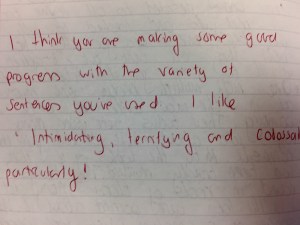 I think you are making some good
progress with the variety of
sentences you've used. I like
'Intimidating, terrifying and colossal
particularly!